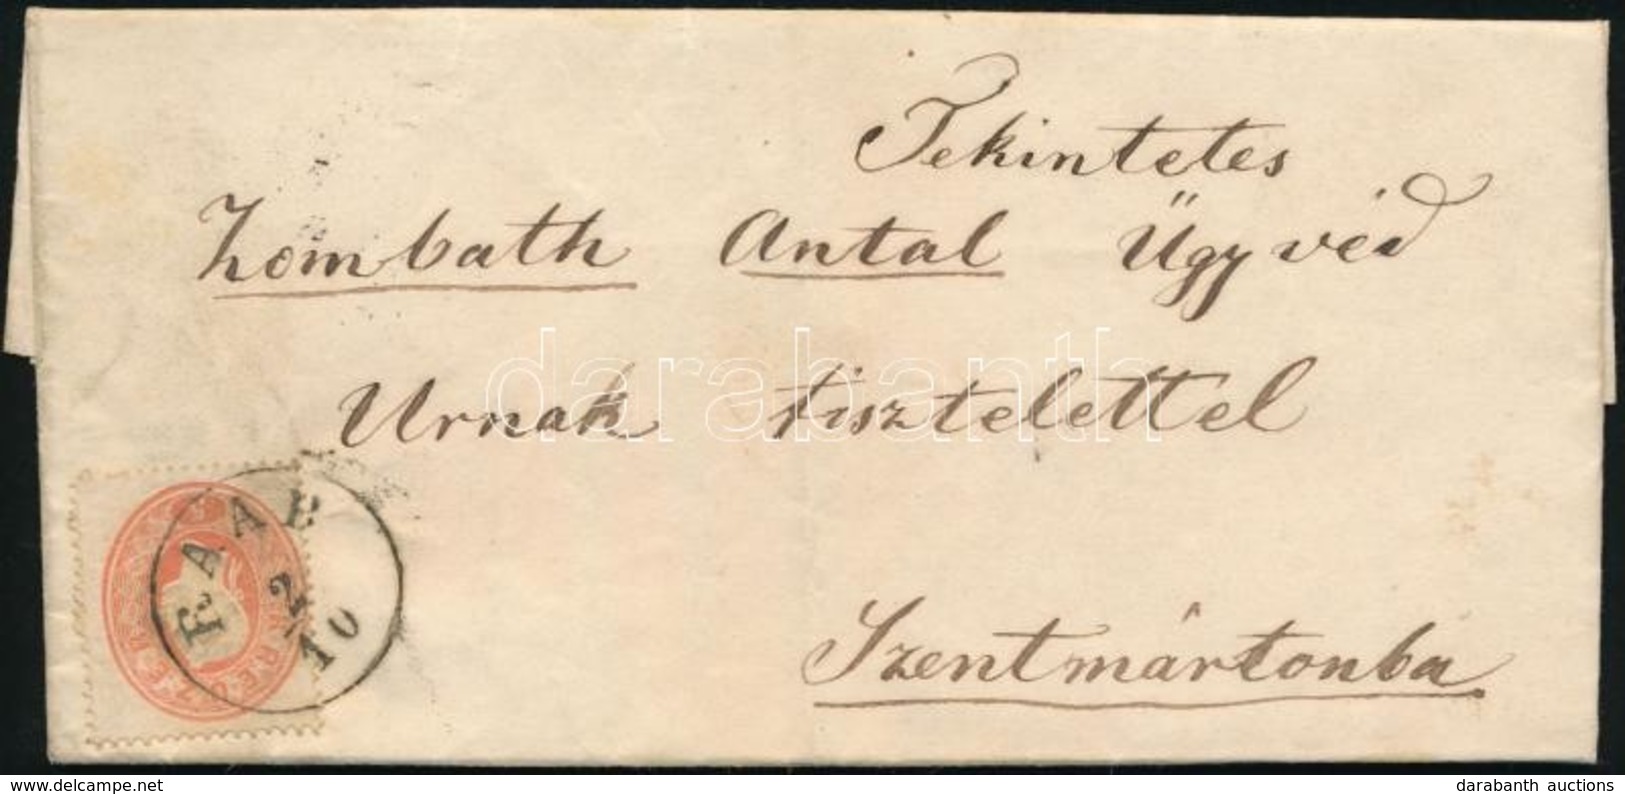 Tekintetes
Zombath Antal Ügyvéd
Urnak tisztelettel
Szentmártonba
RAAB
2/10
darabanth
darabanth auctions